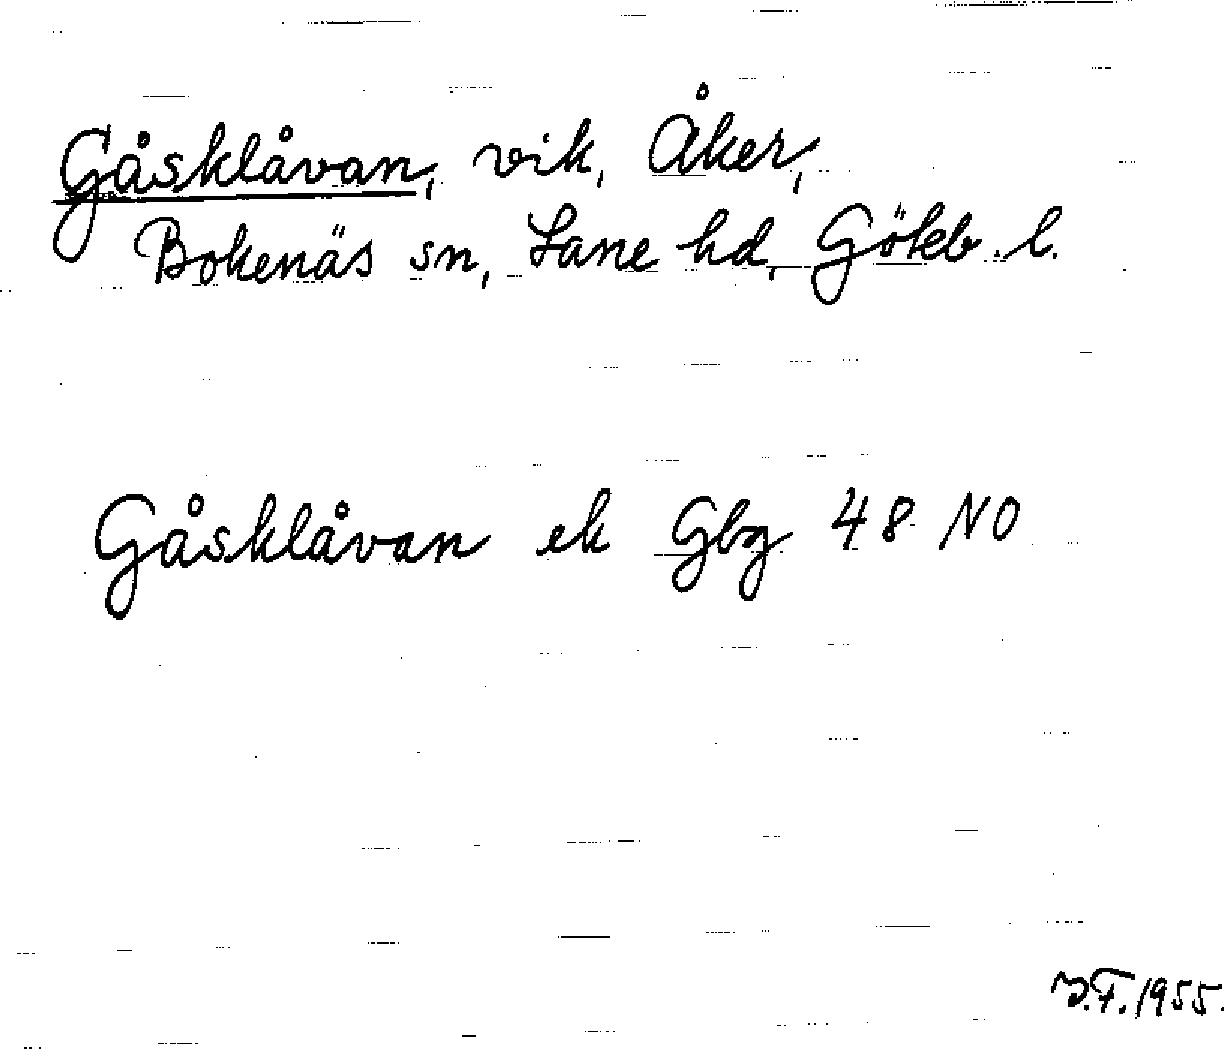 Gåsklåvan, vik, Åker,
Bokenäs sn, Lane hd, Göteb. l.
Gåsklåvan ek Gbg 48 NO
J.F. 1955.